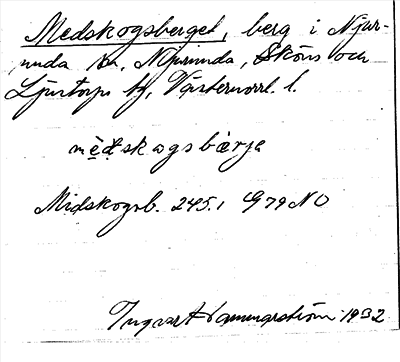 Medskogsberget, berg i Njur-
unda sn, Njurunda, Sköns och
Ljustorps tg, Västernorrl. l.
mèdskogsbàrjə
Midskogsb. 245.1 G 79 NO
Ingvar Hammarström 1932